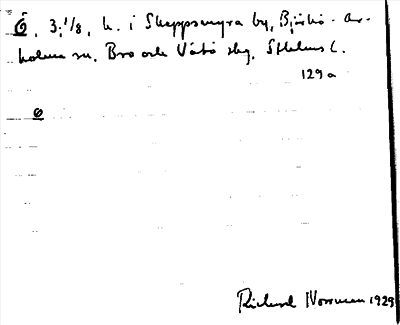 Ö, 3:1/8, h. i Skeppsmyra by, Björkö-Ar-
holma sn, Bro och Vätö skg, Sthlms l.
129a
ö
Richard Norrman 1929